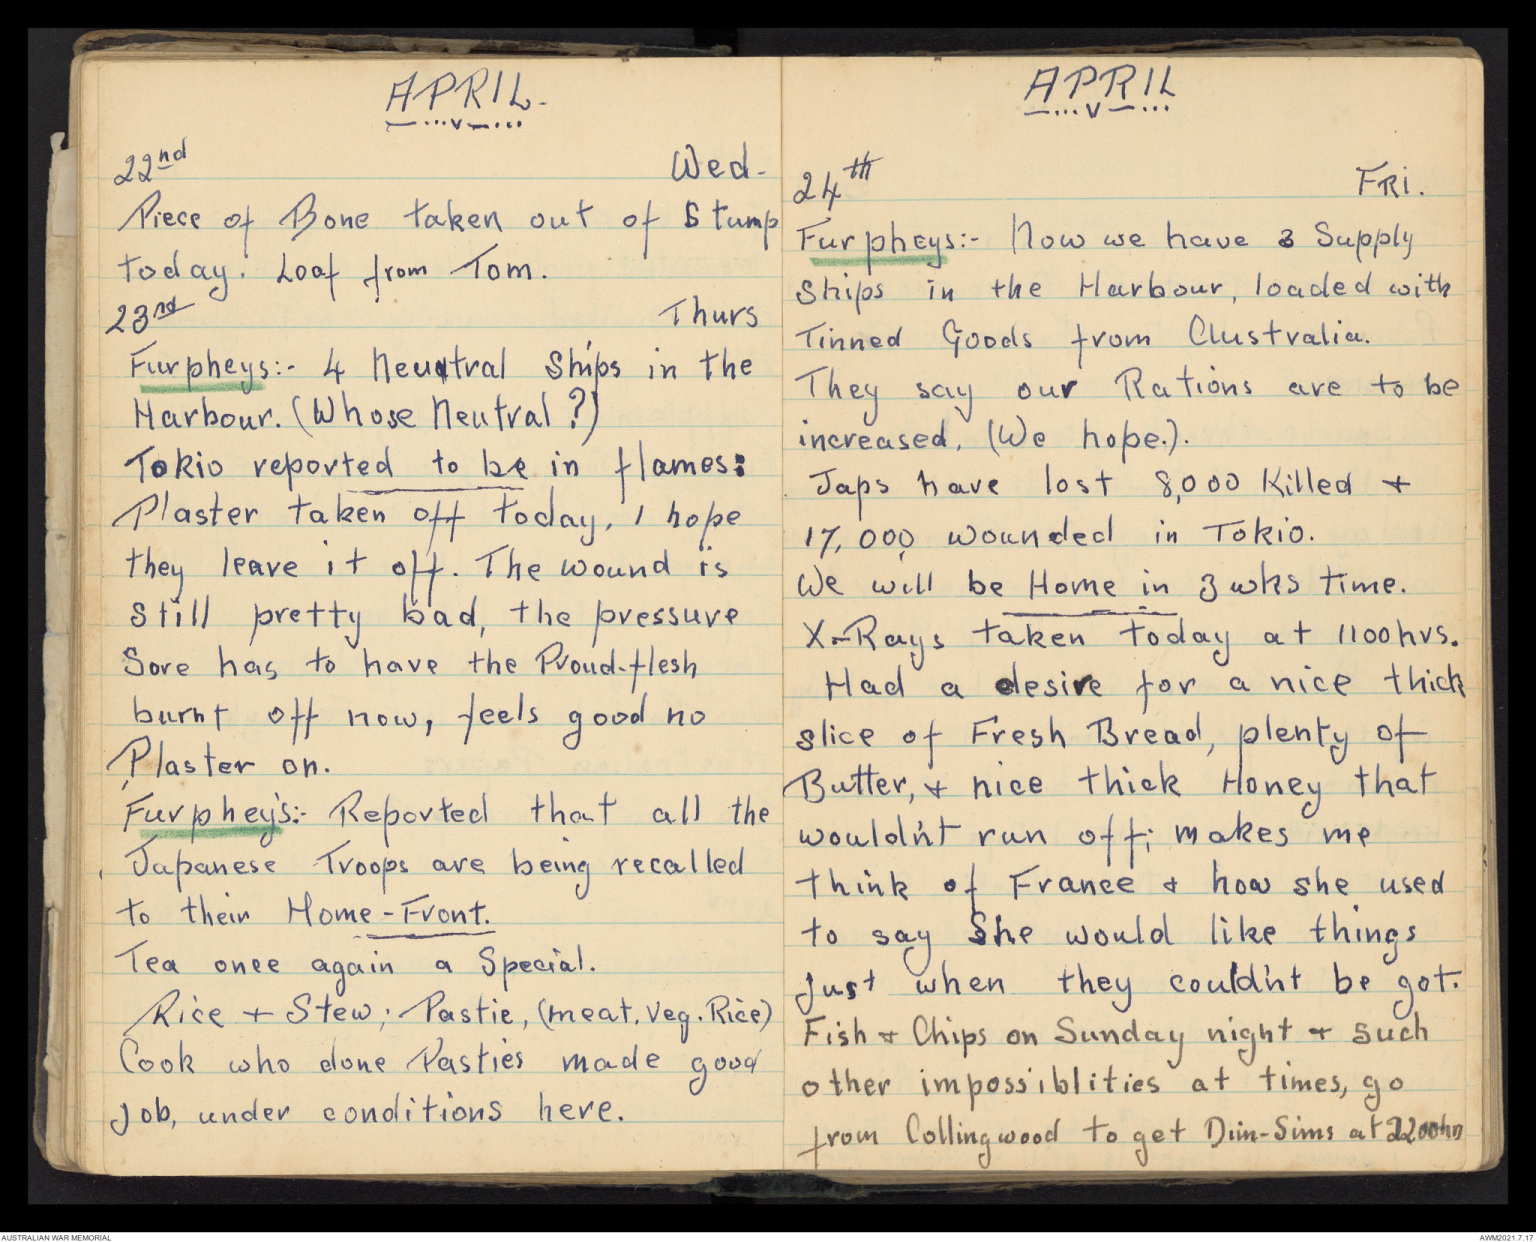 APRIL.
22nd Wed.
Piece of Bone taken out of Stump
today. Loaf from Tom.
23rd Thurs
Furpheys:- 4 Neutral Ships in the
Harbour. (Whose Neutral?)
Tokio reported to be in flames:
Plaster taken off today, I hope
they leave it off. The wound is
still pretty bad, the pressure
Sore has to have the Proud-flesh
burnt off now, feels good no
Plaster on.
Furphey's:- Reported that all the
Japanese Troops are being recalled
to their Home-Front.
Tea once again a Special.
Rice + Stew; Pastie, (meat. Veg. Rice)
Cook who done Pasties made good
job, under conditions here.
APRIL
24th FRI.
Furpheys:- Now we have 3 Supply
Ships in the Harbour, loaded with
Tinned Goods from Australia.
They say our Rations are to be
increased. (We hope.).
Japs have lost 8,000 Killed +
17,000 wounded in Tokio.
We will be Home in 3 wks time.
X-Rays taken today at 1100hrs.
Had a desire for a nice thick
slice of Fresh Bread, plenty of
Butter, + nice thick Honey that
would'nt run off; makes me
think of France + how she used
to say She would like things
just when they could'nt be got.
Fish + Chips on Sunday night + such
other impossiblities at times, go
from Collingwood to get Dim-Sims at 2200hrs
AUSTRALIAN WAR MEMORIAL
AWM2021.7.17